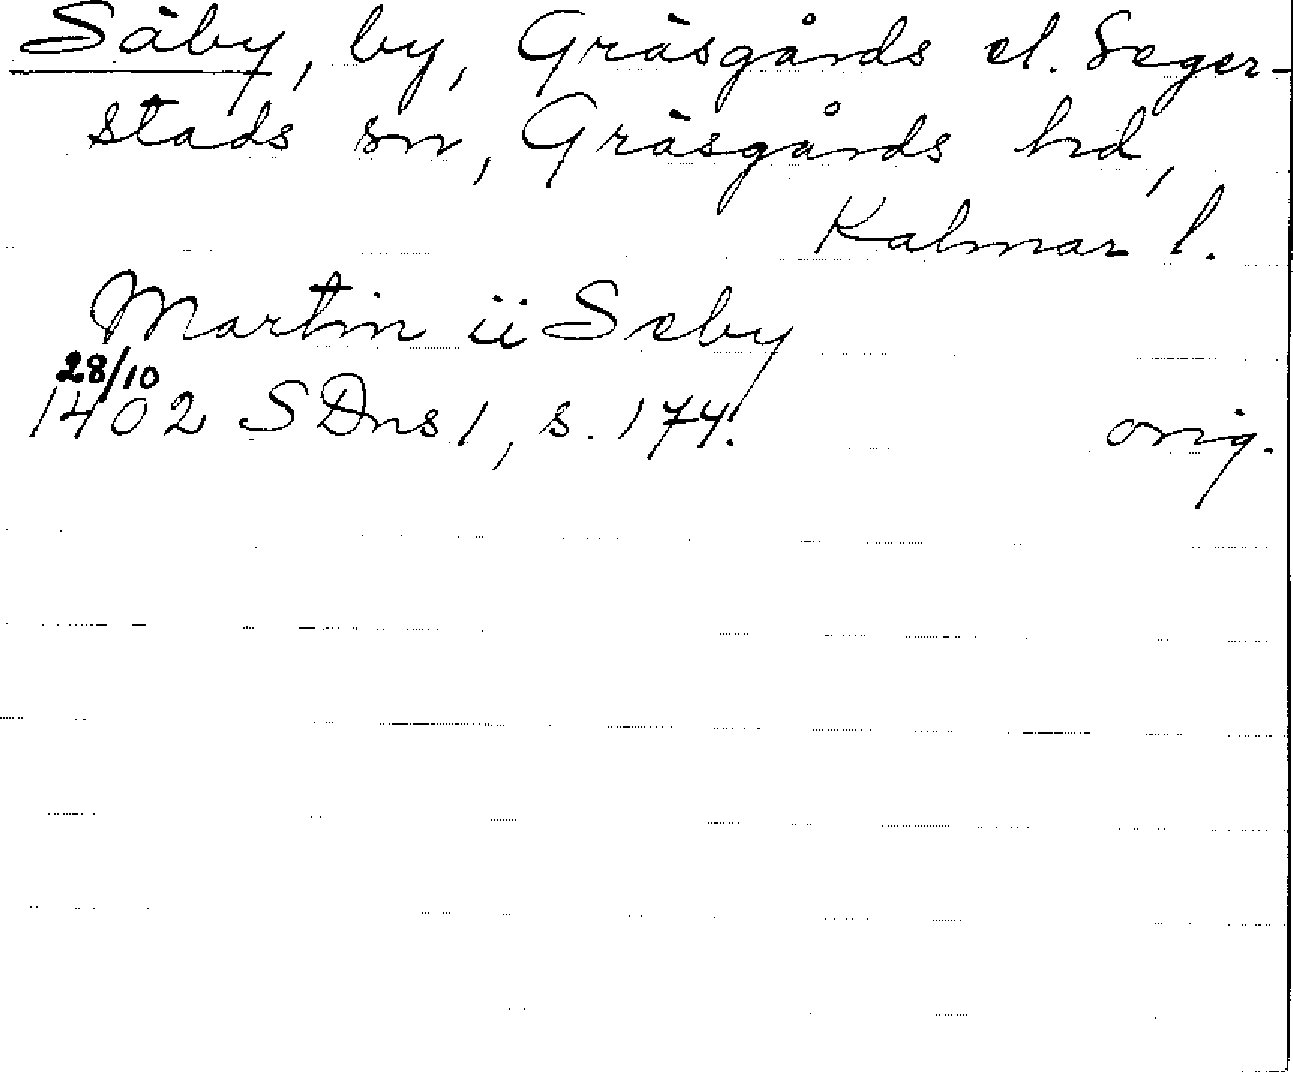 Säby, by, Gräsgårds el. Seger-
stads sn, Gräsgårds hd,
Kalmar l.
Martin ii Seby
28/10
1402 SDns 1, s. 174. orig.